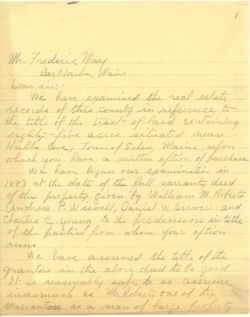 1
Mr. Frederic Vay
Bar Harbor, Maine
Dear sir:-
We have examined the real estate
records of this county in reference to
the title of the tract of land containing
eighty-five acres situated near
Hulls Cove, Town of Eden, Maine upon
which you have a written option of purchase
We have begun our examination in
1887 at the date of the full warranty deed
of this property given by William M. Roberts
Andrew P. Wiswell, Daniel W. and
Charles C. Young to the predecessors in title
of the parties from whom your option
runs.
We have assumed the title of the
grantors in the above deed to be good
It is reasonably safe to so assume
inasmuch as Mr. Roberts one of the
warrantors is a man of large property